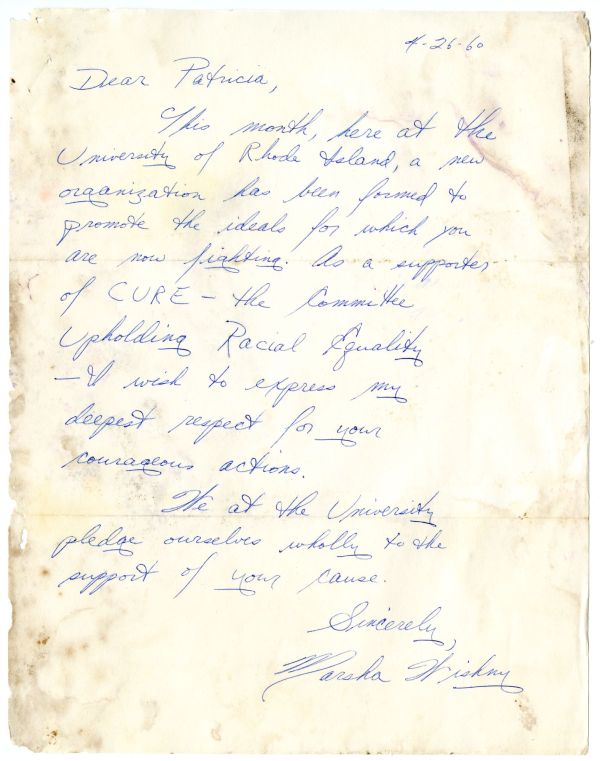 4-26-60
Dear Patricia,
This month, here at the
University of Rhode Island, a new
organization has been formed to
promote the ideals for which you
are now fighting. As a supporter
of CURE – the Committee
Upholding Racial Equality
– I wish to express my
deepest respect for your
courageous actions.
We at the University
pledge ourselves wholly to the
support of your cause.
Sincerely,
Marsha Wishny